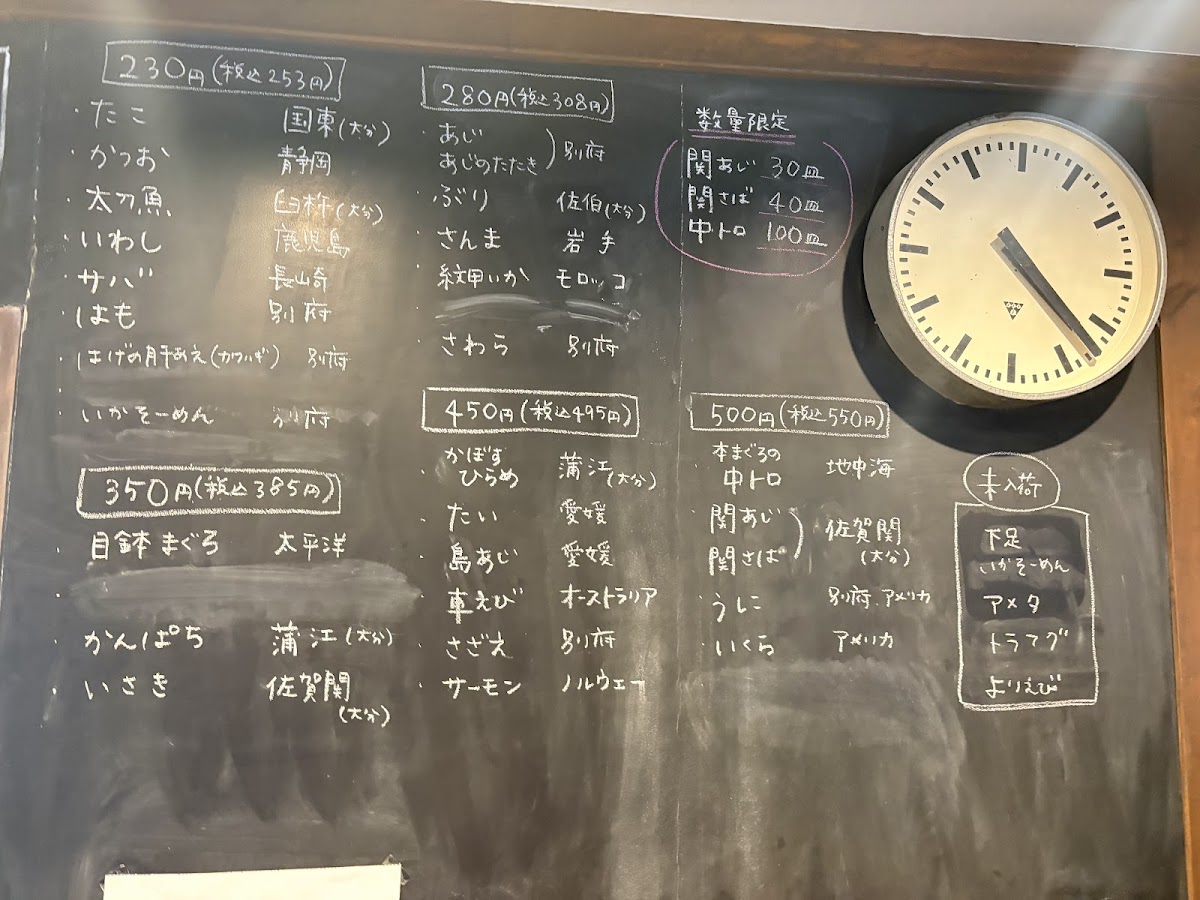 230円(税込253円)
・たこ 国東(大分)
・かつお 静岡
・太刀魚 臼杵(大分)
・いわし 鹿児島
・サバ 長崎
・はも 別府
・はげの肝あえ(カワハギ) 別府
・いかそーめん 別府
350円(税込385円)
・目鉢まぐろ 太平洋
・
・かんぱち 蒲江(大分)
・いさき 佐賀関
(大分)
280円(税込308円)
・あじ
あじのたたき )別府
・ぶり 佐伯(大分)
・さんま 岩手
・紋甲いか モロッコ
・さわら 別府
450円(税込495円)
・かぼす
ひらめ 蒲江(大分)
・たい 愛媛
・島あじ 愛媛
・車えび オーストラリア
・さざえ 別府
・サーモン ノルウェー
数量限定
関あじ 30皿
関さば 40皿
中トロ 100皿
500円(税込550円)
・本まぐろの
中トロ 地中海
・関あじ
・関さば )佐賀関
(大分)
・うに 別府.アメリカ
・いくら アメリカ
未入荷
下足
いかそーめん
アメタ
トラフグ
よりえび